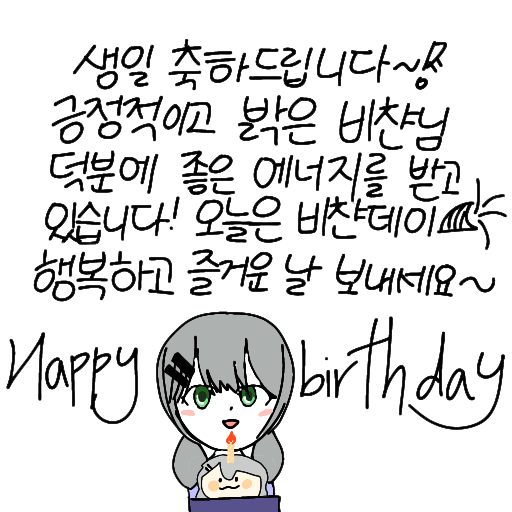 생일 축하드립니다~!
긍정적이고 밝은 비챤님
덕분에 좋은 에너지를 받고
있습니다! 오늘은 비챤데이
행복하고 즐거운 날 보내세요~
Happy birthday